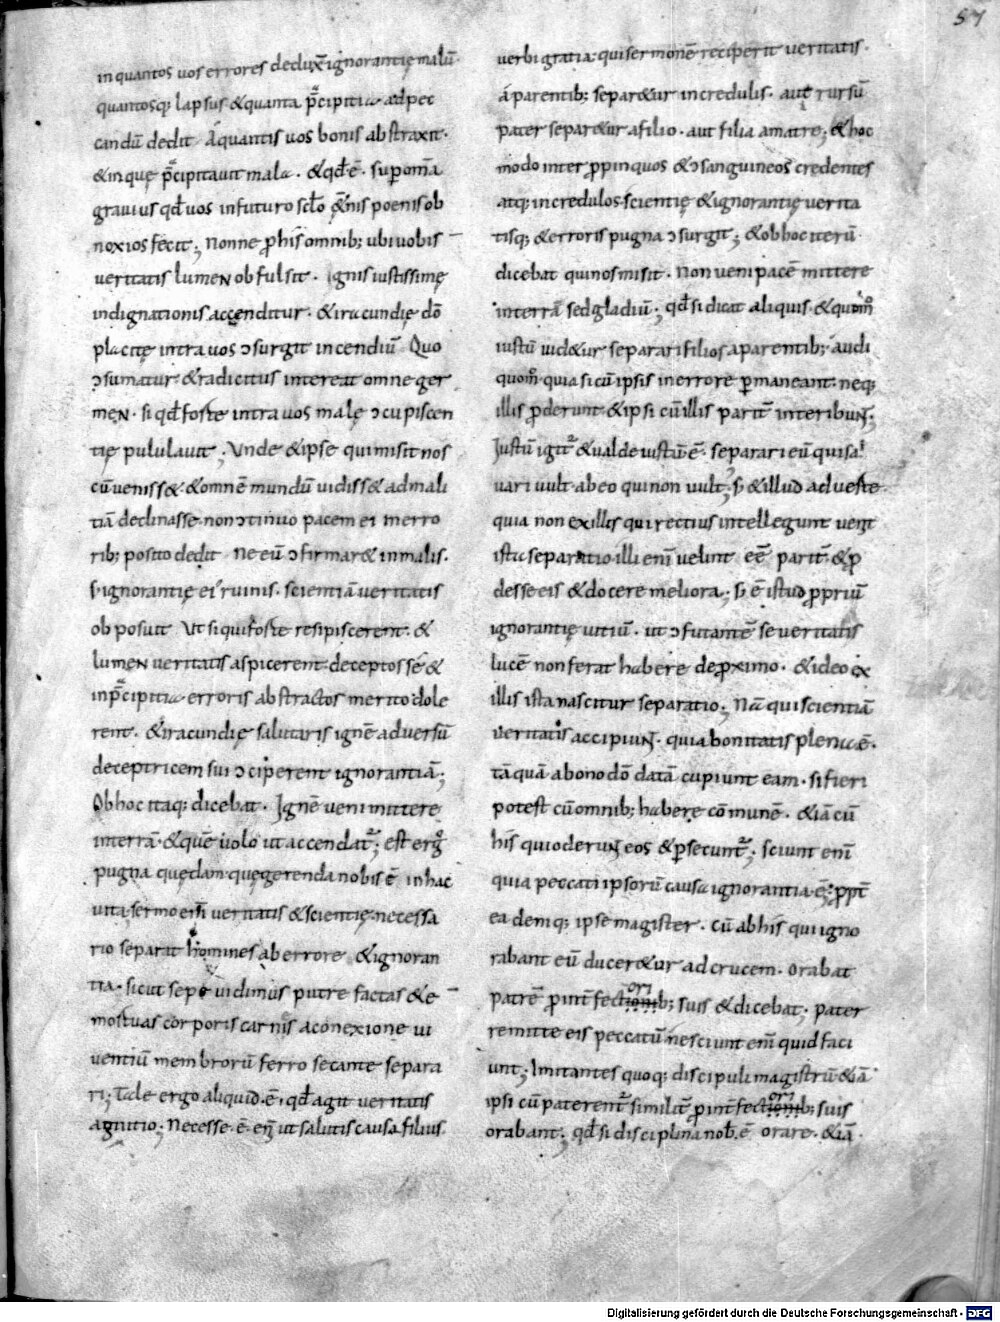 57
in quantos uos errores deduxit̄ ignorantię malū·
quantosq; lapsus &quanta p̄cipitia ad pec
candū dedit Aquantis uos bonis abstraxit·
&inquę p̄cipitauit mala· &qđ ē· sup omīa
grauius qđ uos infuturo scło &̄nis poenis ob
noxios fecit; Nonne p his omnib; ubi uobis
ueritatis lumen obfulsit· ignis iustissimę
indignationis accenditur· &iracundię dō
placitę intra uos ɔsurgit incendiū Quo
ɔsumatur &radicitus intereat omne ger
men· si qđ foste intra uos malę ɔcupiscen
tię pululauit; Vnde &ipse qui misit nos
cū uenisse& &omnē mundū uidiss& ad mali
tiā declinasse· non ɔtinuo pacem ei in erro
rib; posito dedit Ne eū ɔfirmar& in malis·
s· ignorantię ei' ruinis· scientiā ueritatis
obposuit Ut si qui foste resipiscerent· &
lumen ueritatis aspicerent· deceptos sē &
inp̄cipitia erroris abstractos merito dole
rent· &iracundię salutaris ignē aduersū
deceptricem sui ɔciperent ignorantiā;
Obhoc itaq; dicebat· Ignē ueni mittere
interrā· &quē uolo ut accendat᷒; est erḡ
pugna quędam quę gerenda nobis ē in hac
uita, sermo eīs ueritatis &scientię necessa
rio separat homines ab errore &ignoran
tia· sicut sepe uidimus putrefactas &e
mortuas corporis carnis aconexione ui
uentiū membrorū ferro secante separa
ri; Tale ergo aliquid ē· qđ agit ueritatis
agnitio; Necesse ē eī ut salutis causa filius
uerbi gratia· qui sermonē receperit ueritatis·
á parentib; separ&ur incredulis· aut rursū
pater separ&ur afilio· aut filia amatre; &hoc
modo inter ppinquos &ɔsanguineos credentes
atq; incredulos· scientię &ignorantię uerita
tisq; &erroris pugna ɔsurgit; &obhoc iterū
dicebat quinos misit· Non ueni pacē mittere
interrā sed gladiū; qđ si dicat aliquis· &quom̊
iustū uid&ur separari filios aparentib; audi
quom̊· quia si cū ipsis in errore pmaneant· neq;
illis pderunt· &ipsi cū illis parit̄ interibunt;
Iustū igit᷒ &ualde iustū ē· separari eū qui sal
uari uult· ab eo qui non uult; s; &illud aduerte
quia non exillis qui rectius intellegunt uenit
ista separatio illi enī uelint eē parit̄· &p
desse eis &docere meliora; s; ē istud ppriū
ignorantię uitiū· ut ɔfutantē se ueritatis
lucē non ferat habere deproximo· &ideo ex
illis ista nascitur separatio; Nā qui scientiā
ueritatis accipiunt· quia bonitatis plena ē·
tāquā abono dō datā cupiunt eam· si fieri
potest cū omnib; habere cōmunē· &iā cū
his qui oderunt eos &psecunt᷒; sciunt enī
quia peccati ipsorū causa ignorantia ē; ppt̄
ea demq; ipse magister· cū ab his qui igno
rabant eū ducer&ur ad crucem· orabat
patrē p int̄fectorib; suis &dicebat; pater
remitte eis peccatū nesciunt enī quid faci
unt; Imitantes quoq; discipuli magistrū &iā
ipsi cū paterent᷒ similit̄ p int̄fectorib; suis
orabant; qđ si disciplina nob̄ ē orare· &iā
Digitalisierung gefördert durch die Deutsche Forschungsgemeinschaft - DFG